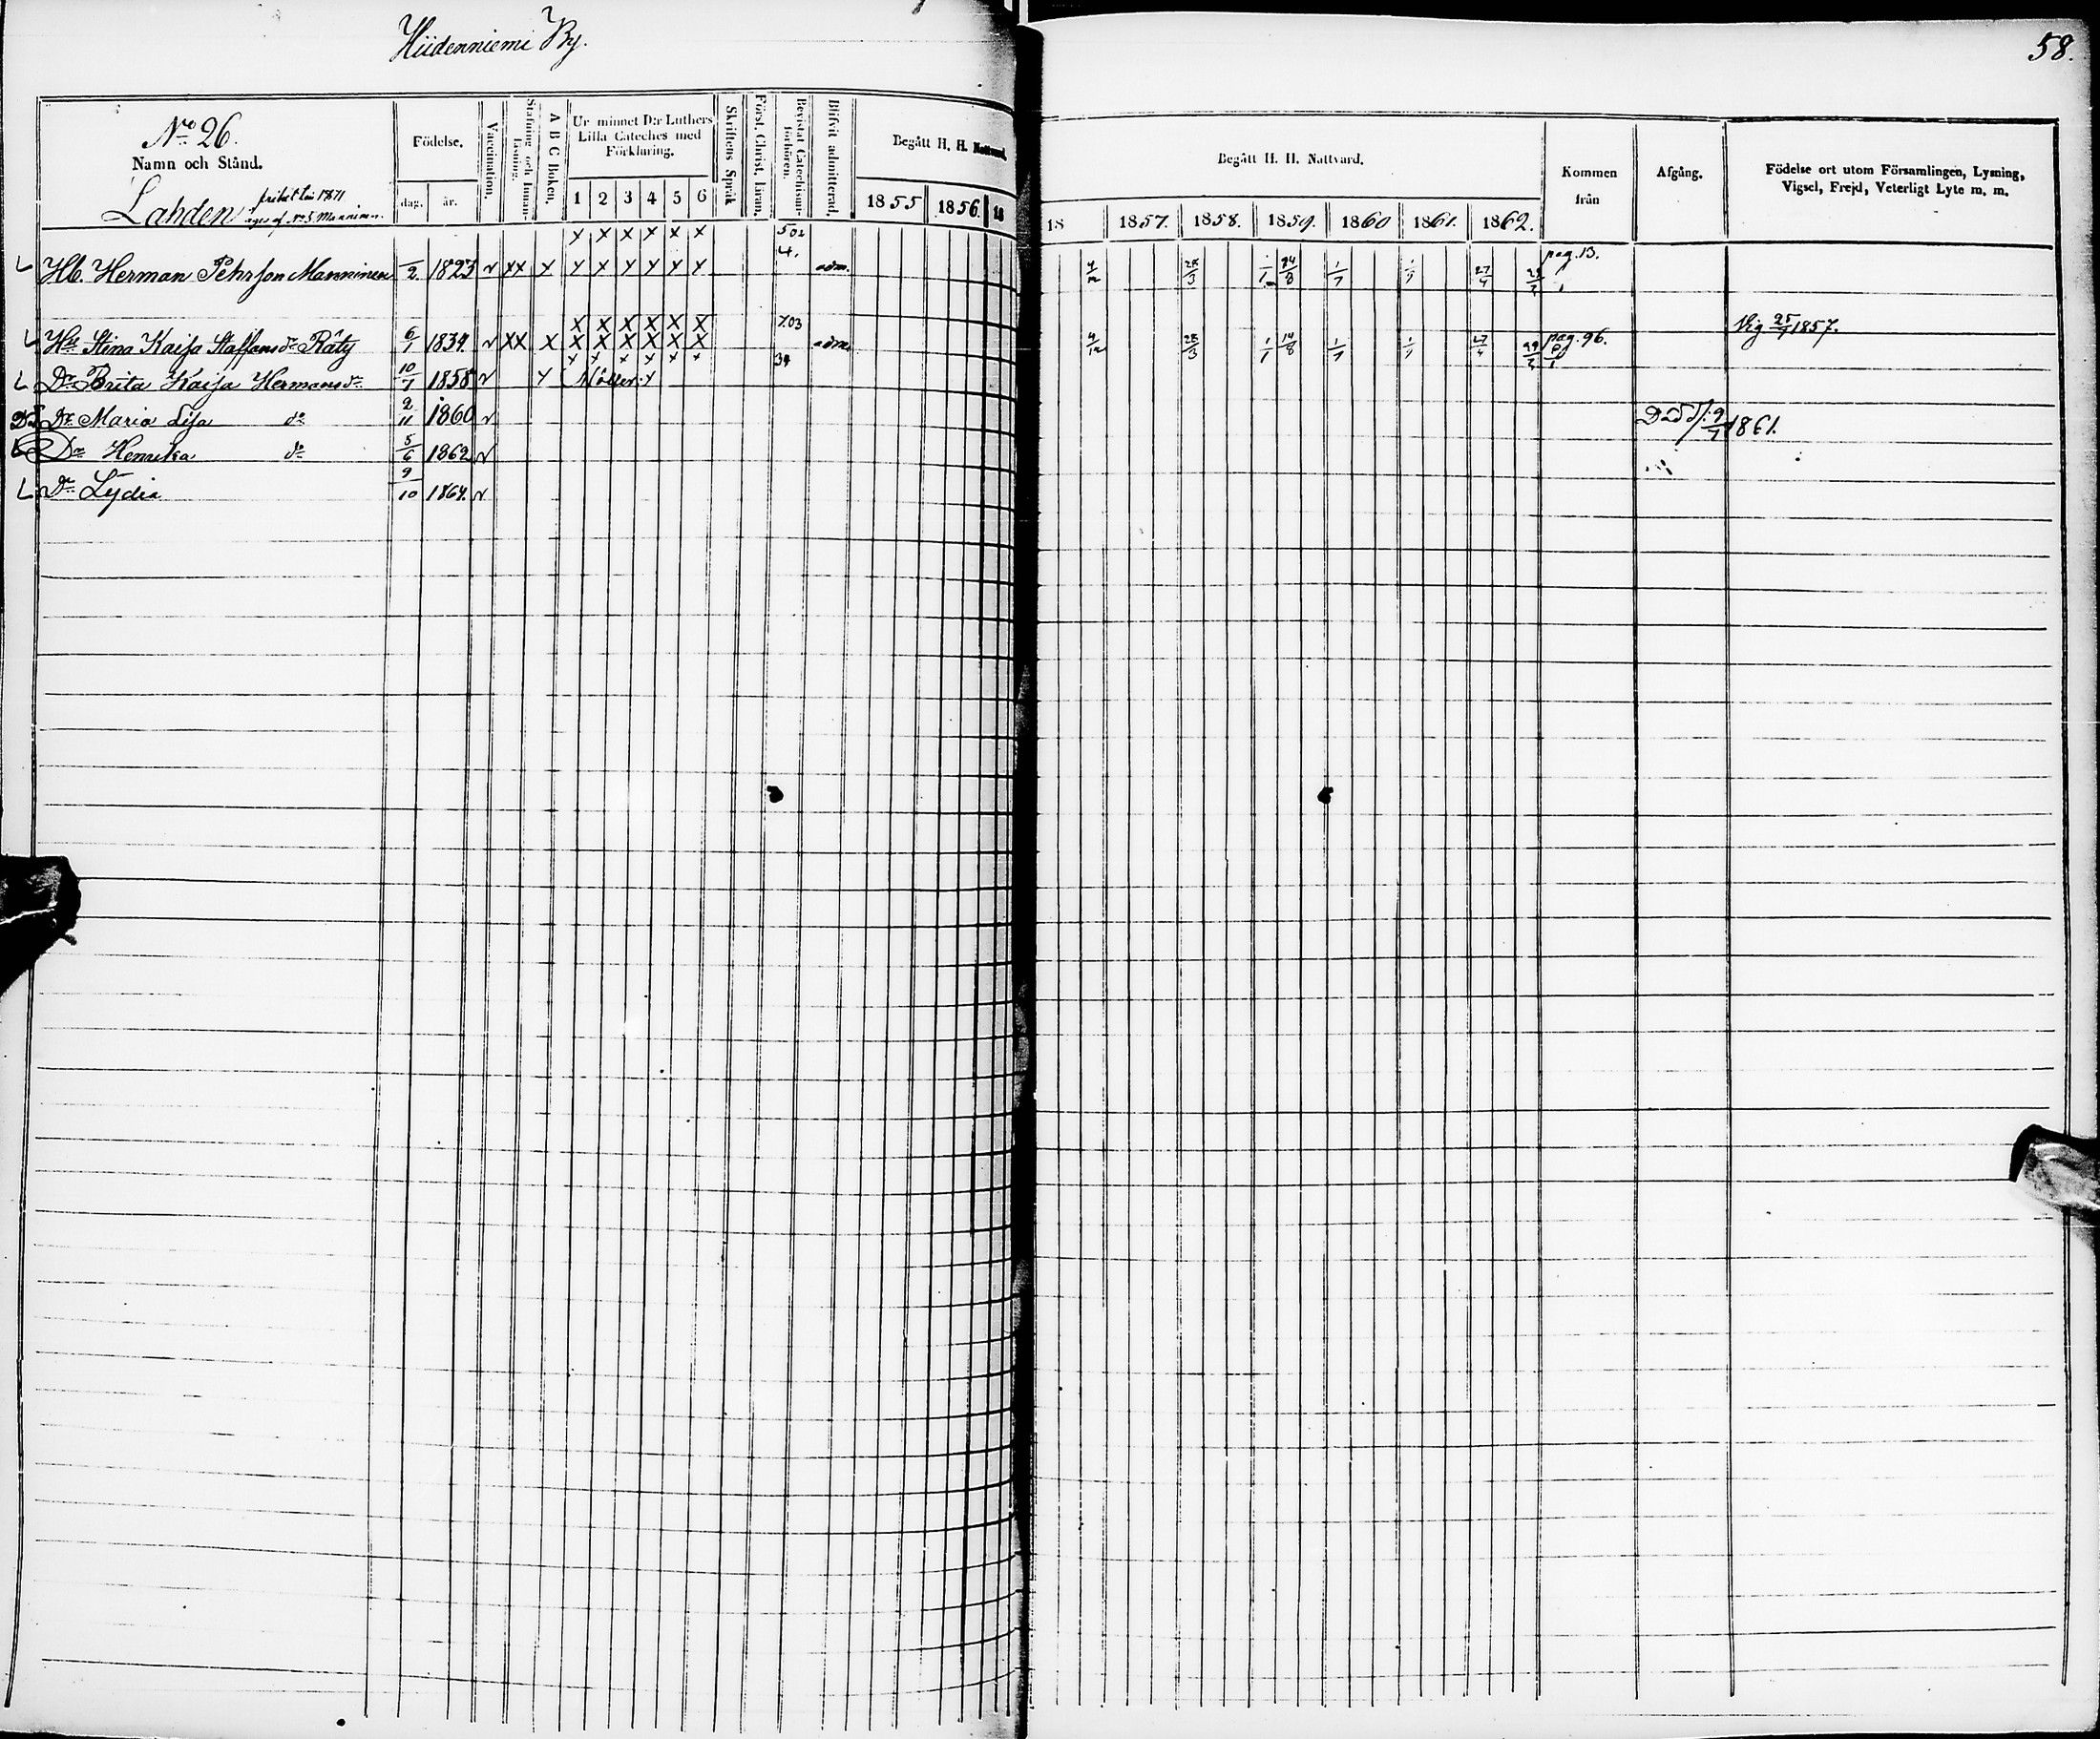 Hiidenniemi By.
58.
No 26.
Namn och Stånd.
Födelse.
Vaccination.
Stafning och Innanläsning.
A B C Boken.
Ur minnet D:r Luthers Lilla Cateches med Förklaring.
Skriftens Språk
Först. Christ. läran.
Bevistat Catechismi-förhören.
Blifvit admitterad.
Begått H. H. Nattvard.
Begått H. H. Nattvard.
Kommen från
Afgång.
Födelse ort utom Församlingen, Lysning, Vigsel, Frejd, Veterligt Lyte m. m.
dag. år. 1 2 3 4 5 6 1855 1856. 18 18 1857. 1858. 1859. 1860 1861. 1862.
Lahden 1871 af No 5 Manninen
X X X X X X 502
Hb. Herman Pehrson Manninen /2 1823 v XX Y Y X Y Y Y Y 4. adm. 28/3 1/1 14/8 1/7 1/7 27/4 pag. 13.
X X X X X X 703
Hu Stina Kaisa Staffansdr Räty 6/1 1834 v XX X X X X X X X adm. 9/12 28/3 1/1 14/8 1/7 1/7 27/4 pag. 96. Vig 25/7 1857.
X X X X X X 34
Dr Brita Kaisa Hermansdr 10/7 1858 v Y
Dr Maria Lisa do 2/11 1860 v Död d. 9/7 1861.
Dr Henrika do 5/6 1862 v
Dr Lydia 9/10 1864. v